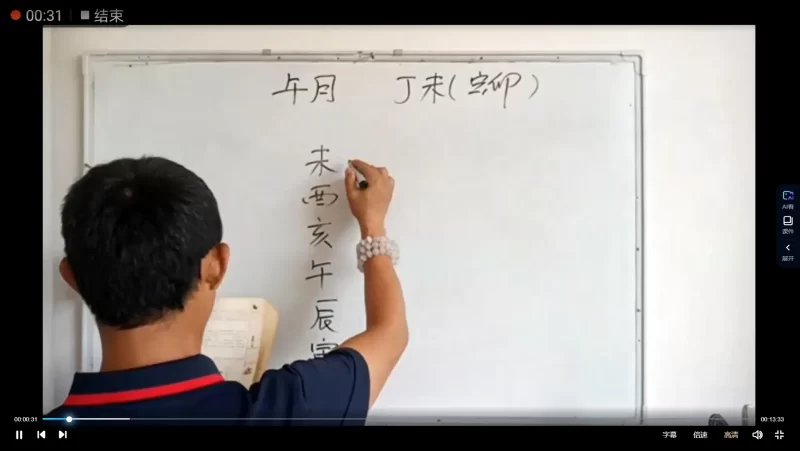 00:31 结束
午月 丁未(寅卯)
未
酉
亥
午
辰
寅
AI看
课件
展开
00:00:31
00:13:33
字幕 倍速 高清